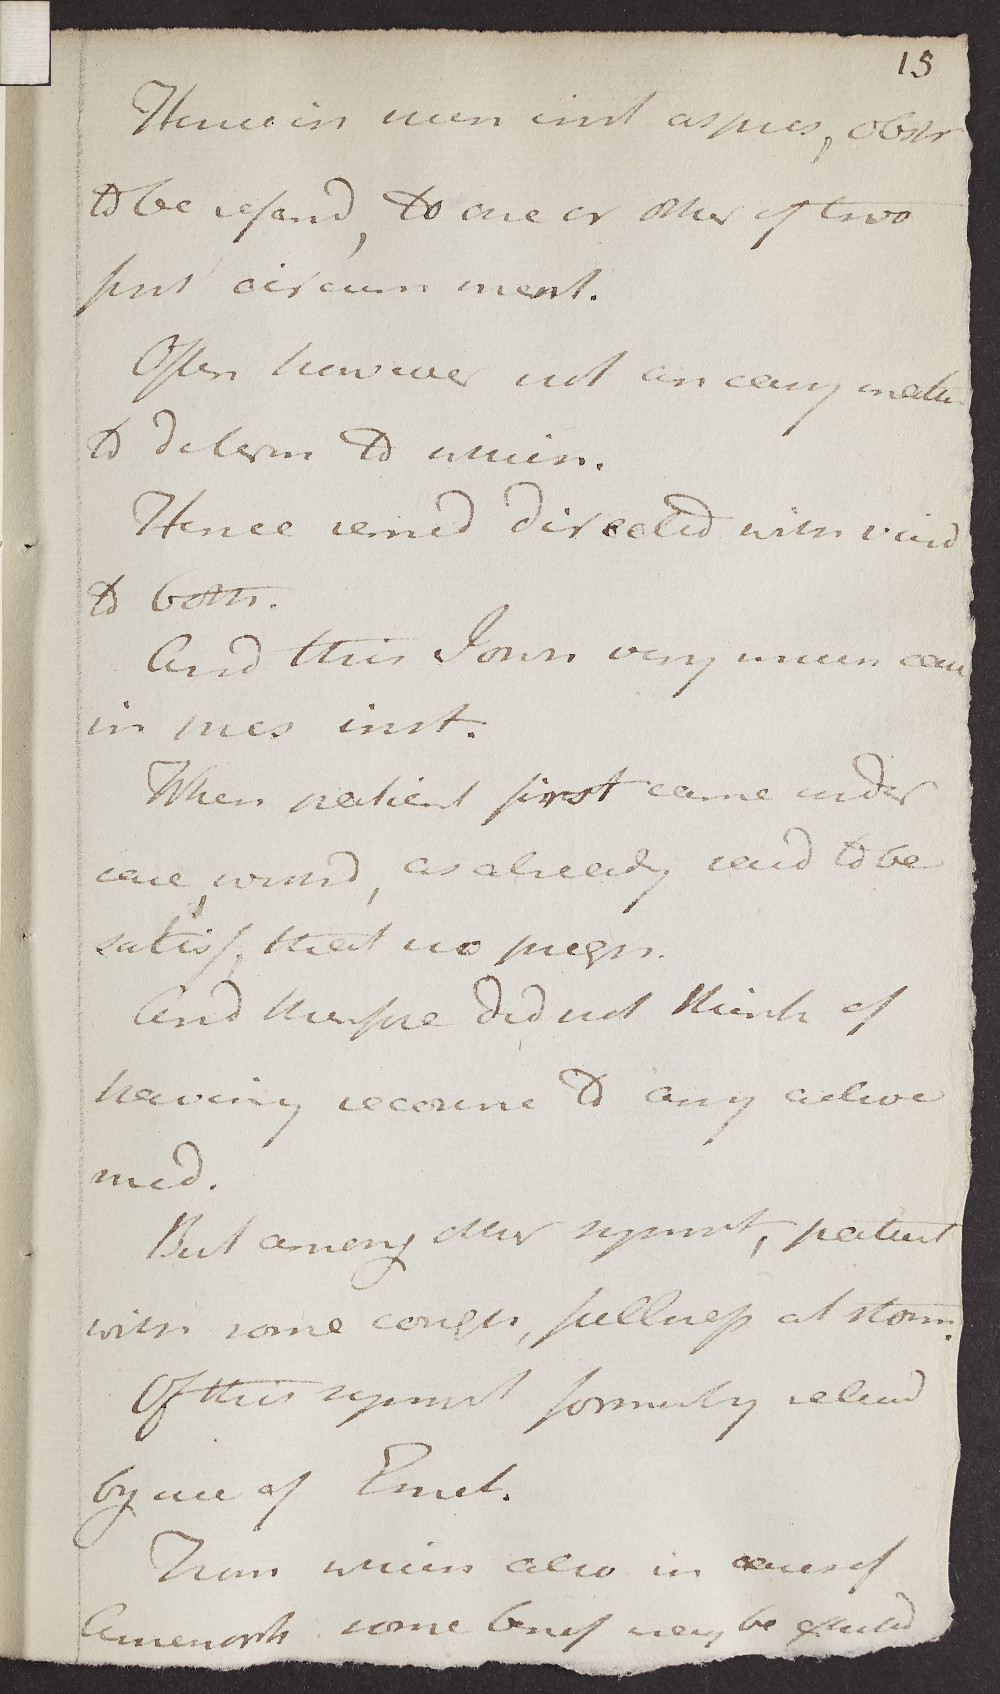 15
Hence in men inst as pres, obstr
to be refand, to one or other of two
put circum ment.
Often however not an easy matte
to determ to which.
Hence remed directed with view
to both.
And this I own very much case
in pres inst.
When patient first came under
care, wishd, as already said to be
satisf, that no pregn.
And therfore did not think of
having recourse to any active
med.
But among other sympt, patient
with some cough, fullness at stom.
Of this sympt formerly relievd
by use of Emet.
From which also in cases of
Amenorrh some benef may be expectd